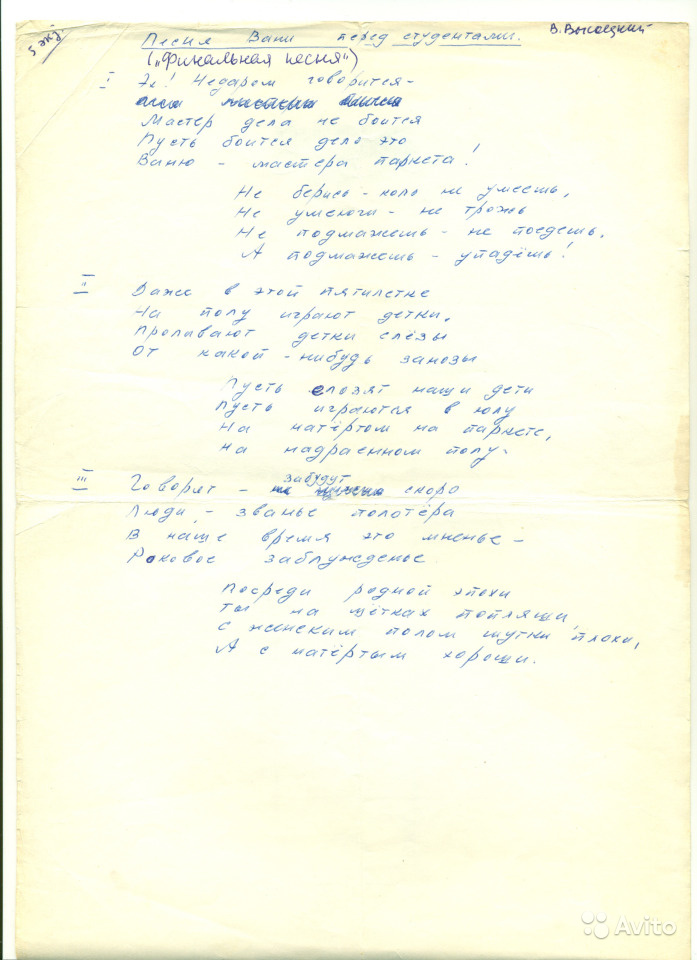 5 экз.
В. Высоцкий
Песня Вани перед студентами.
("Финальная песня")
I Эх! Недаром говорится -
Мастер дела не боится
Пусть боится дело это
Ваню - мастера паркета!
Не берись - коль не умеешь,
Не умеючи - не трожь
Не подмажешь - не поедешь,
А подмажешь - упадёшь!
II Даже в этой пятилетке
На полу играют детки,
Проливают детки слёзы
От какой-нибудь занозы
Пусть елозят наши дети
Пусть играются в юлу
На натёртом на паркете,
На надраенном полу.
III Говорят - забудут скоро
Люди - званье полотёра
В наше время это мненье -
Роковое заблужденье
Посреди родной эпохи
Ты на щётках попляши,
С женским полом шутки плохи,
А с натёртым хороши.
Avito